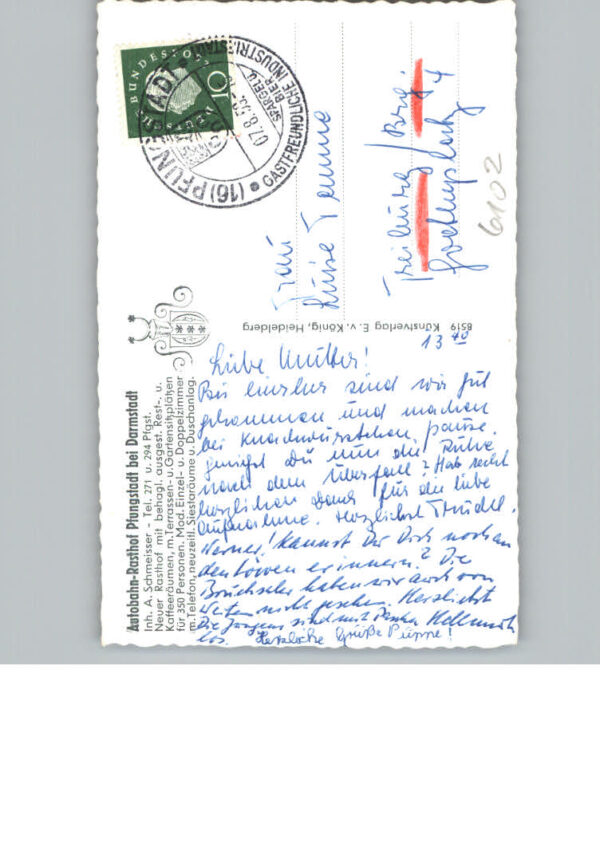 BUNDESPOST
10
(16) PFUNGSTADT
07.8.59
SPARGEL U.
BIER
GASTFREUNDLICHE INDUSTRIESTADT
Frau
Luise Temme
Freiburg / Brg.
4
6102
8519 Kunstverlag E. v. König, Heidelberg
Autobahn-Rasthof Pfungstadt bei Darmstadt
Inh. A. Schmeisser - Tel. 271 u. 294 Pfgst.
Neuer Rasthof mit behagl. ausgest. Rest.- u.
Kaffeeräumen, m. Terrassen- u. Gartensitzplätzen
für 350 Personen. Mod. Einzel- u. Doppelzimmer
m. Telefon, neuzeitl. Siestaräume u. Duschanlag.
13 40
Liebe Mutter!
Bis hierher sind wir gut
gekommen und machen
bei Knackwürstchen pause.
Genießt Du nun die Ruhe
nach dem Überfall? Hab recht
herzlichen Dank für die liebe
Aufnahme. Herzlichst Trudel.
Werner! Kannst Du Dich noch an
den Löwen erinnern? Die
haben wir auch von
Weitem nicht gesehen. Herzlichst
Die Jungens sind mit Hellmuth
los. Herzliche Grüße